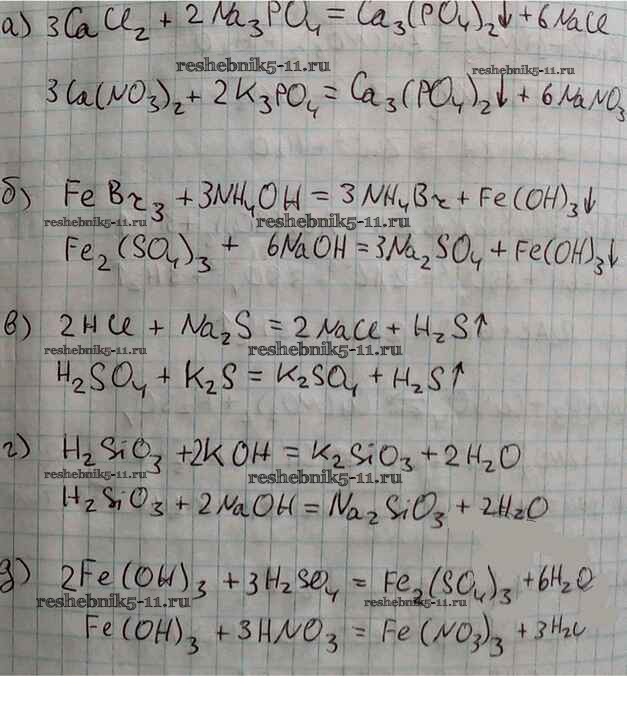 а) 3CaCl₂ + 2Na₃PO₄ = Ca₃(PO₄)₂↓ + 6NaCl
reshebnik5-11.ru reshebnik5-11.ru
3Ca(NO₃)₂ + 2K₃PO₄ = Ca₃(PO₄)₂↓ + 6NaNO₃
б) FeBr₃ + 3NH₄OH = 3NH₄Br + Fe(OH)₃↓
reshebnik5-11.ru reshebnik5-11.ru
Fe₂(SO₄)₃ + 6NaOH = 3Na₂SO₄ + Fe(OH)₃↓
в) 2HCl + Na₂S = 2NaCl + H₂S↑
reshebnik5-11.ru reshebnik5-11.ru
H₂SO₄ + K₂S = K₂SO₄ + H₂S↑
г) H₂SiO₃ + 2KOH = K₂SiO₃ + 2H₂O
reshebnik5-11.ru reshebnik5-11.ru
H₂SiO₃ + 2NaOH = Na₂SiO₃ + 2H₂O
д) 2Fe(OH)₃ + 3H₂SO₄ = Fe₂(SO₄)₃ + 6H₂O
reshebnik5-11.ru reshebnik5-11.ru
Fe(OH)₃ + 3HNO₃ = Fe(NO₃)₃ + 3H₂O